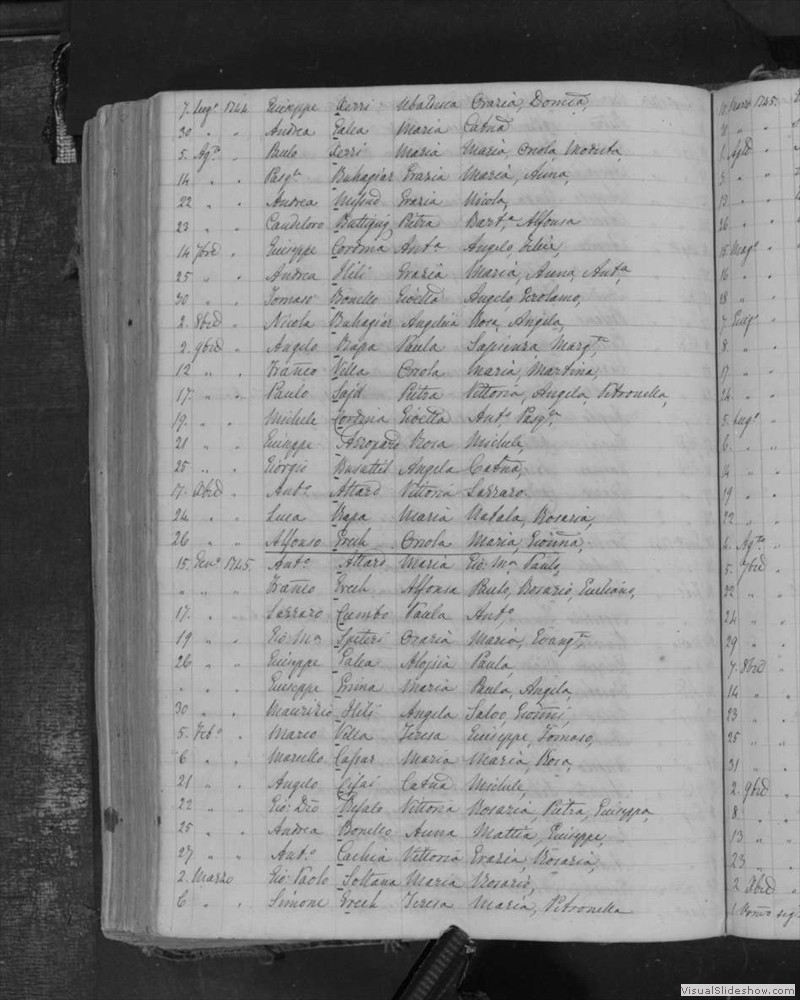 7. Lug.o 1744 Giuseppe Xerri Ubaldesca Grazia, Domca,
30 " " Andrea Galea Maria Catna
5. Ag.to " Paulo Xerri Maria Maria, Orsola, Modesta,
14 " " Pasq.le Buhagiar Grazia Maria, Anna,
22 " " Andrea Grazia Nicola,
23 " " Candeloro Buttigieg Pietra Bart.a Alfonsa
14 7bre " Giuseppe Cordina Ant.a Angelo, Felice,
25 " " Andrea Hili Grazia Maria, Anna, Ant.a
30 " " Tomaso Bonello Gioetta Angelo, Gerolamo,
2. 8bre " Nicola Buhagiar Angelica Rosa, Angela,
2. 9bre " Angelo Xapa Paula Sapienza, Marg.ta,
12 " " Franco Villa Orsola Maria, Martina,
17. " " Paulo Sajd Pietra Vittoria, Angela, Petronella,
19. " " Michele Cordina Gioetta Ant.o Pasq.le,
21 " " Giuseppe Azzopard Rosa Michele,
25 " " Giorgio Busuttil Angela Catna,
17. Xbre " Ant.o Attard Vittoria Lazzaro
24 " " Luca Xapa Maria Natala, Rosaria,
26 " " Alfonso Grech Orsola Maria, Gioanna,
15. Gen.o 1745 Ant.o Attard Maria Gio: Ma Paulo,
" " " Franco Grech Alfonsa Paulo, Rosario, Giuliano,
17. " " Lazzaro Cumbo Paula Ant.o
19 " " Gio: Ma Spiteri Grazia Maria, Evang.ta,
26 " " Giuseppe Galea Aloisia Paula
" " " Giuseppe Grima Maria Paula, Angela,
30 " " Maurizio Hili Angela Salvo, Gioanni,
5. Feb.o " Mario Villa Teresa Giuseppe, Tomaso,
6 " " Marcello Caspar Maria Maria, Rosa,
21 " " Angelo Cifai Catna Michele,
22 " " Gio: Dro Refalo Vittoria Rosaria, Pietra, Giuseppa,
25 " " Andrea Bonello Anna Mattia, Giuseppe,
27 " " Ant.o Cachia Vittoria Grazia, Rosaria,
2. Marzo Gio: Paolo Soltana Maria Rosario,
6 " " Simone Grech Teresa Maria, Petronella
10. Marzo 1745.
" "
1. Aple
3. " "
13 " "
26 " "
15 Mag.o "
16 " "
28 " "
7 Giug.o
8. " "
17 " "
24 " "
5. Lug.o "
6. " "
" "
19 " "
22 " "
Ag.to "
5. 7bre
22 " "
24 " "
29 " "
7. 8bre
14 " "
23 " "
25 " "
31 " "
2. 9bre
8 " "
13 " "
23 " "
2 Xbre
VisualSlideshow.com